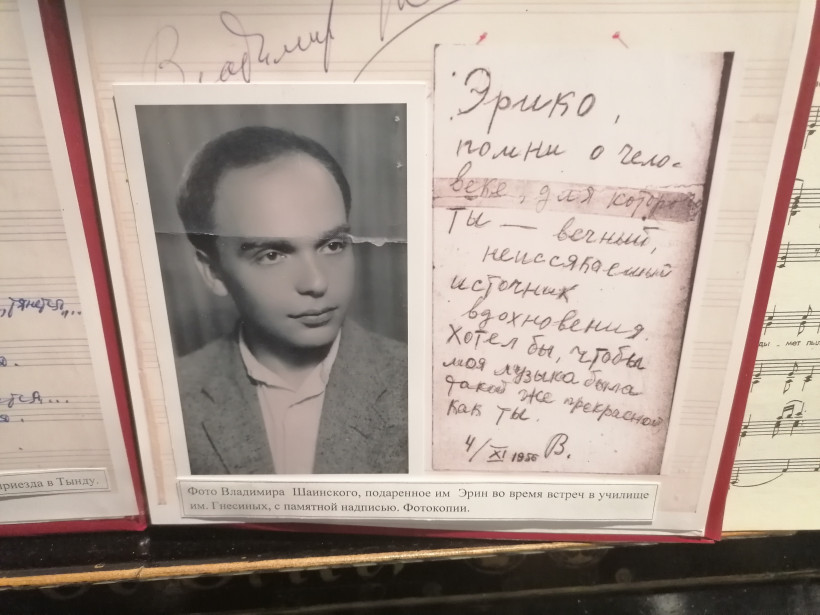 Владимир
Эрико,
помни о чело-
веке, для которого
ты — вечный,
неиссякаемый
источник
вдохновения.
Хотел бы, чтобы
моя музыка была
такой же прекрасной
как ты.
4/XI 1956 В.
Фото Владимира Шаинского, подаренное им Эрин во время встреч в училище
им. Гнесиных, с памятной надписью. Фотокопии.
тянется...
приезда в Тынду.